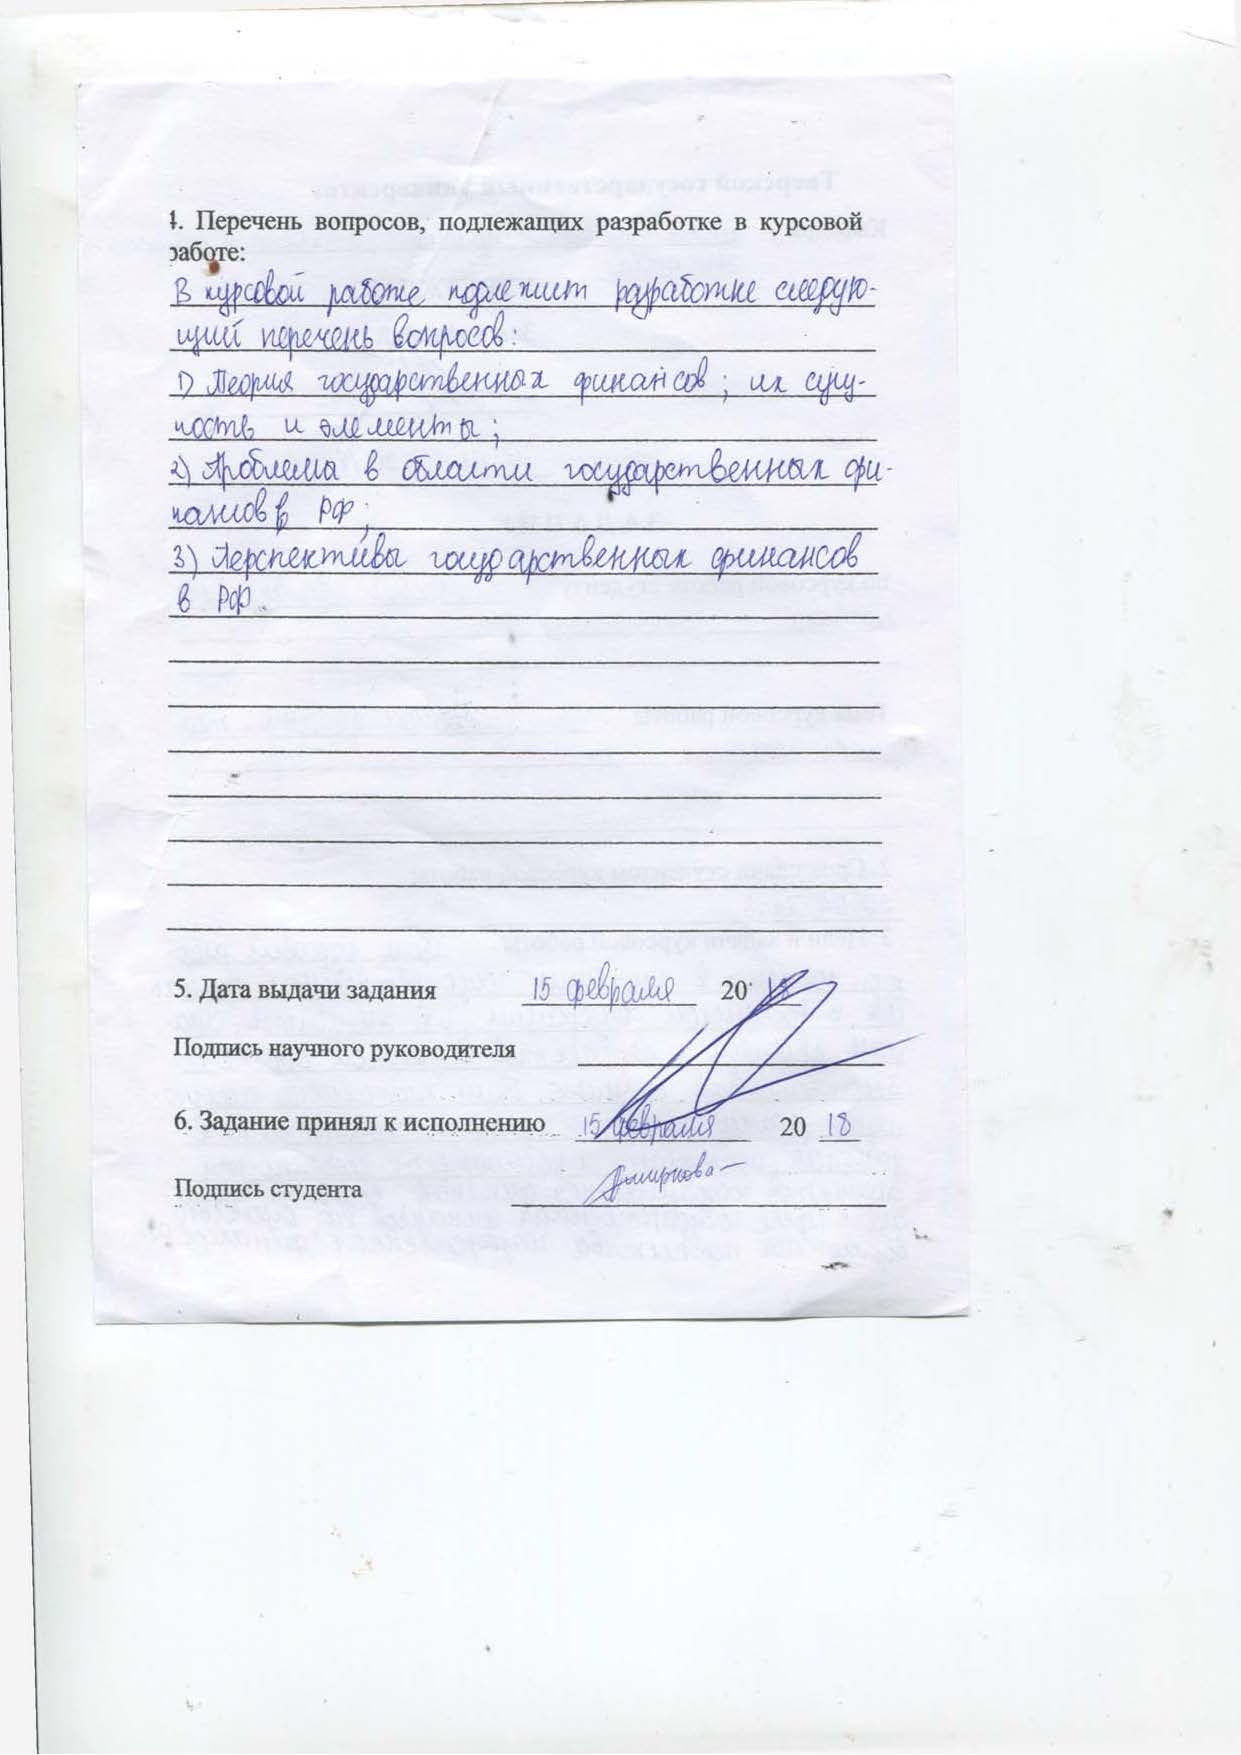 4. Перечень вопросов, подлежащих разработке в курсовой
работе:
В курсовой работе подлежит разработке следую-
щий перечень вопросов:
1) Теория государственных финансов; их сущ-
ность и элементы;
2) Проблемы в области государственных фи-
нансов в РФ;
3) Перспективы государственных финансов
в РФ.
5. Дата выдачи задания 15 февраля 20 18
Подпись научного руководителя
6. Задание принял к исполнению 15 февраля 20 18
Подпись студента